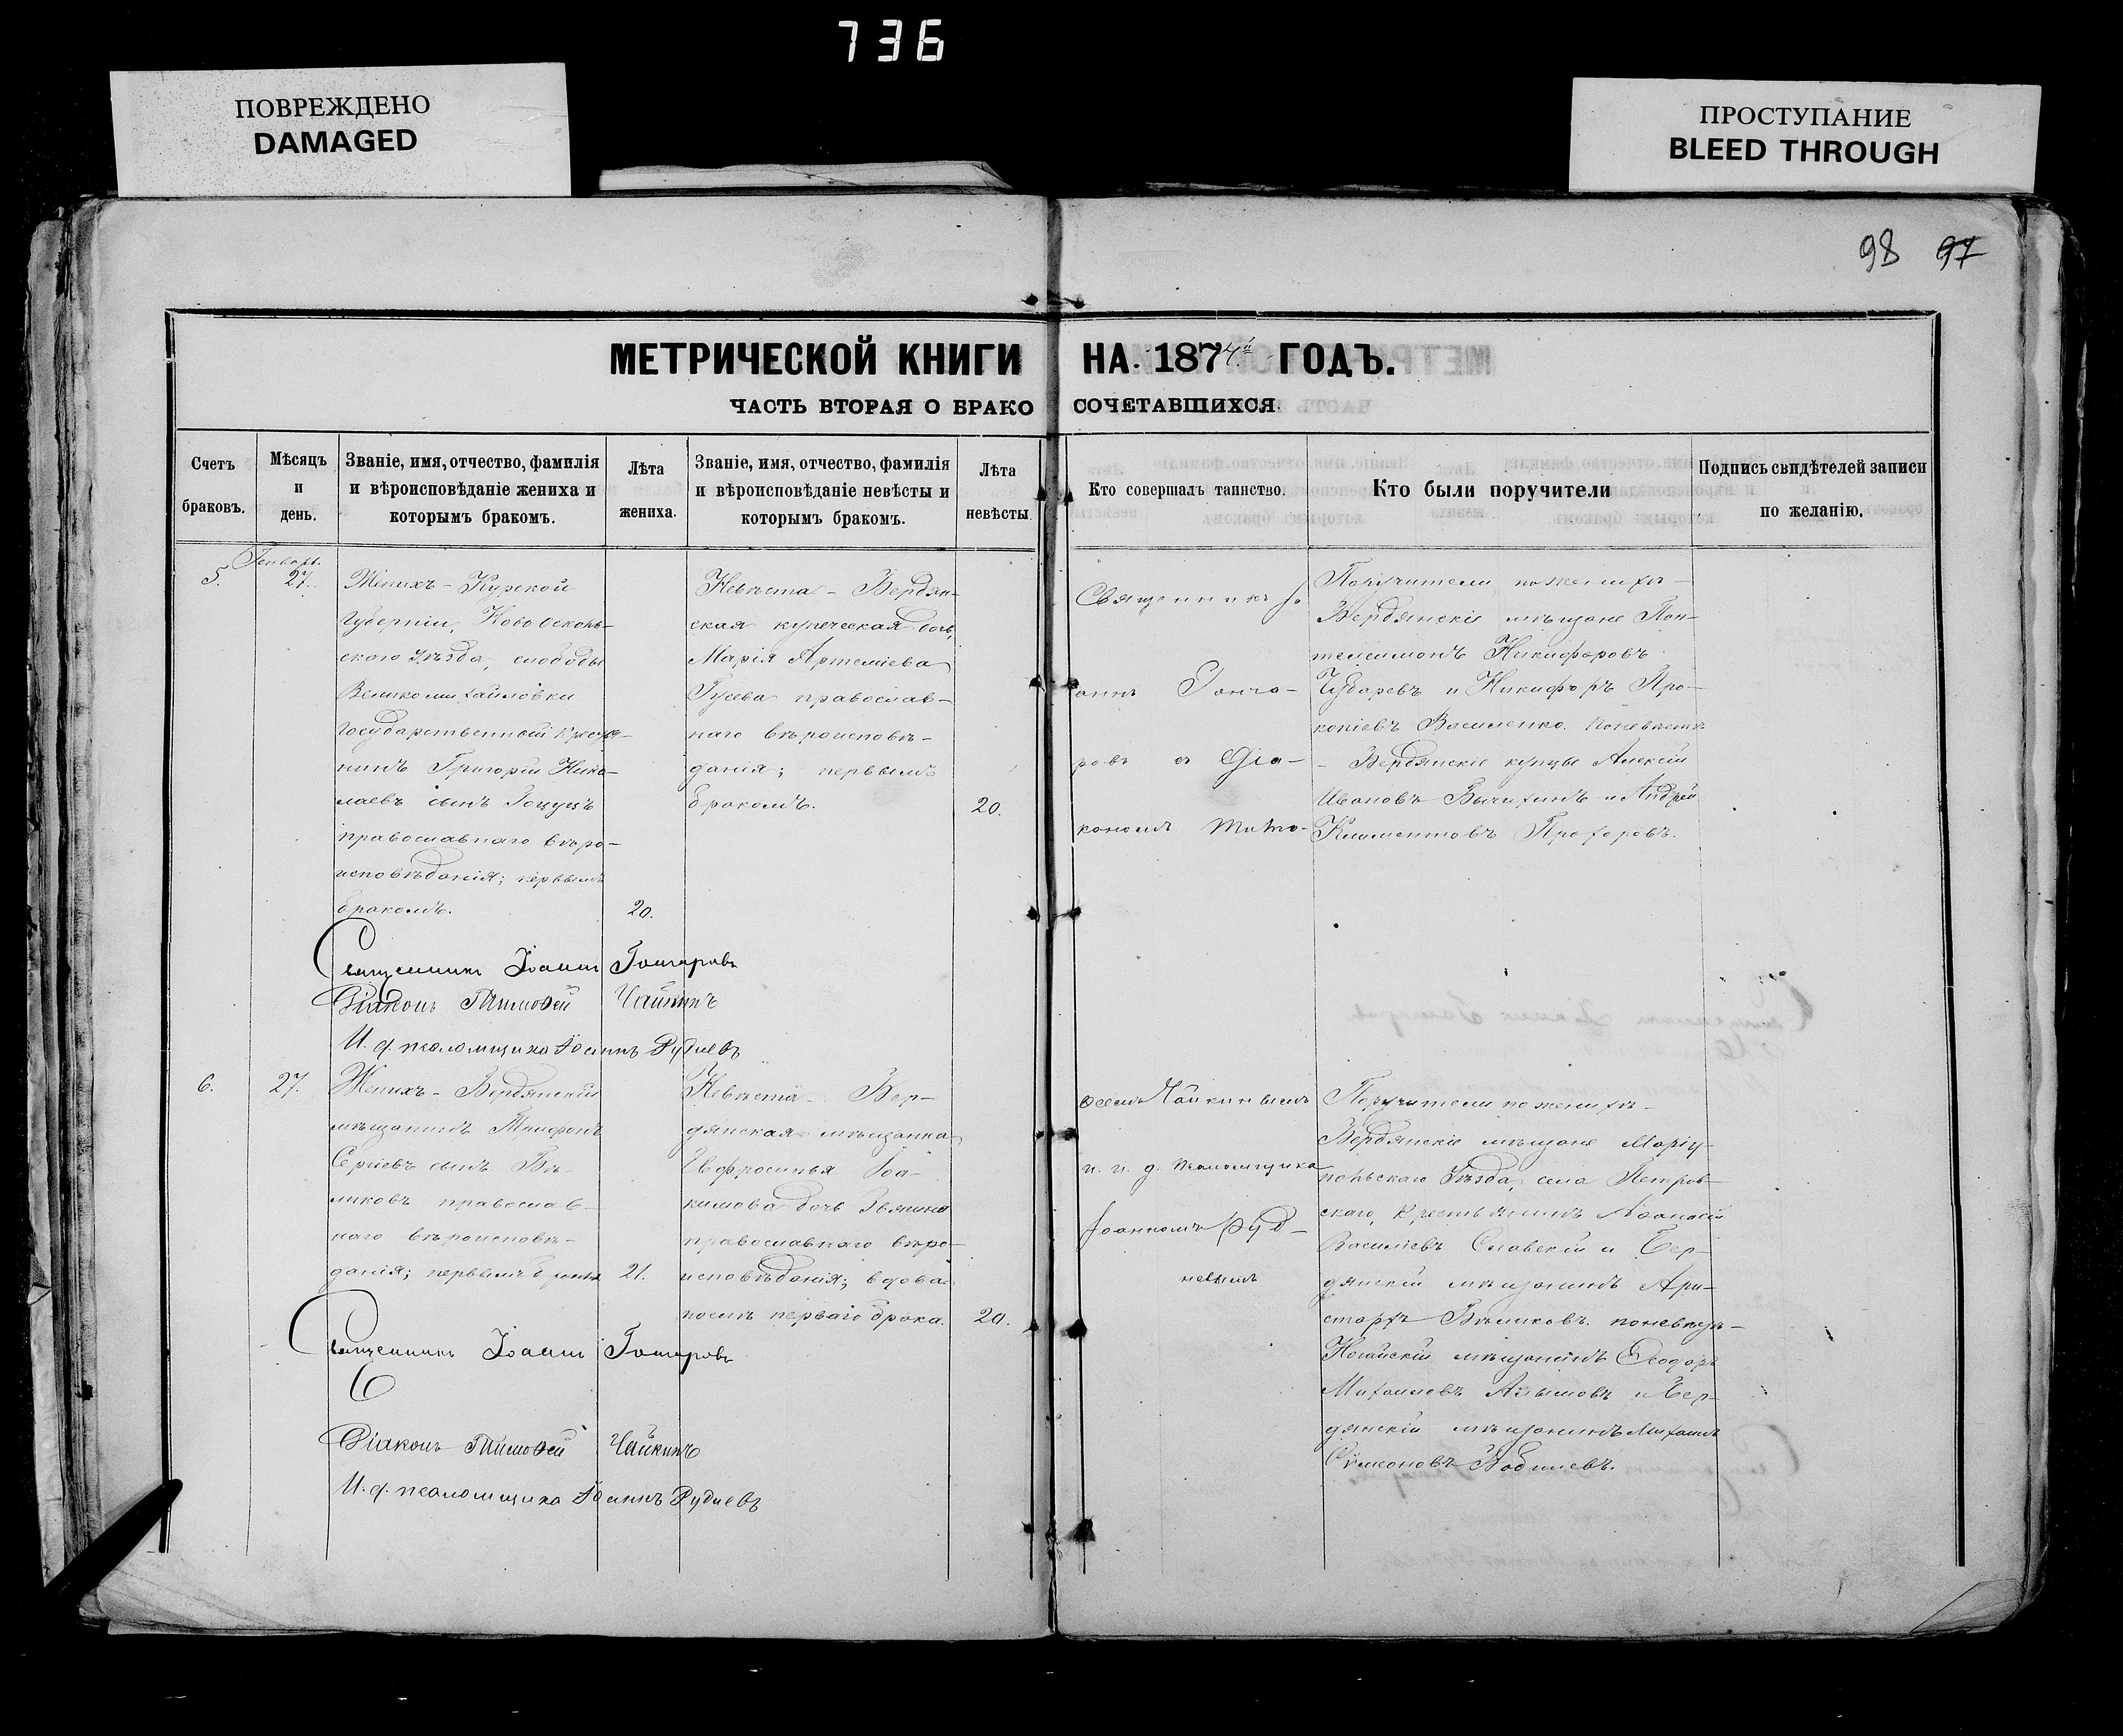 736
ПОВРЕЖДЕНО
DAMAGED
ПРОСТУПАНИЕ
BLEED THROUGH
98 97
МЕТРИЧЕСКОЙ КНИГИ НА 1874й ГОДЪ.
ЧАСТЬ ВТОРАЯ О БРАКОСОЧЕТАВШИХСЯ.
Счетъ
браковъ.
Мѣсяцъ
и
день.
Званіе, имя, отчество, фамилія
и вѣроисповѣданіе жениха и
которымъ бракомъ.
Лѣта
жениха.
Званіе, имя, отчество, фамилія
и вѣроисповѣданіе невѣсты и
которымъ бракомъ.
Лѣта
невѣсты.
Кто совершалъ таинство.
Кто были поручители
Подпись свидѣтелей записи
по желанію.
5.
Генварь.
27.
Женихъ - Курской
Губерніи, Новооскольскаго
Уѣзда, слободы
Великомихайловки
государственный крестьянинъ
Григорій Николаевъ
сынъ
православнаго вѣроисповѣданія;
первымъ
бракомъ.
20.
Невѣста - Бердянская
купеческая дочь,
Марія Артеміева
Гусева православнаго
вѣроисповѣданія;
первымъ
бракомъ.
20.
Священникъ Іоаннъ
Гончаровъ
съ Діакономъ
Тимоѳеемъ
Поручители по женихѣ -
Бердянскіе мѣщане Пантелеимонъ
Никифоровъ
Чубаревъ и Никифоръ Прокопіевъ
Василенко. По невѣстѣ
- Бердянскіе купцы Алексій
Ивановъ Бычихинъ и Андрей
Климентовъ Прохоровъ.
Священникъ Іоаннъ Гончаровъ
Діаконъ Тимоѳей Чайкинъ
И. д. псаломщика Іоаннъ Рудневъ
6.
27.
Женихъ - Бердянскій
мѣщанинъ Трифонъ
Сергіевъ сынъ Бѣликовъ
православнаго
вѣроисповѣданія;
первымъ бракомъ
21.
Невѣста - Бердянская
мѣщанка
Евфросинья Іоакимова
дочь
православнаго вѣроисповѣданія;
вдова
послѣ перваго брака.
20.
Чайкинымъ
и и. д. псаломщика
Іоанномъ Рудневымъ
Поручители по женихѣ -
Бердянскіе мѣщане Маріупольскаго
Уѣзда, села Петровскаго,
крестьянинъ Аѳанасій
Василіевъ Славскій и Бердянскій
мѣщанинъ Аристархъ
Бѣликовъ. по невѣстѣ -
Ногайскій мѣщанинъ Ѳеодоръ
Михаиловъ и Бердянскій
мѣщанинъ Михаилъ
Симеоновъ
Священникъ Іоаннъ Гончаровъ
Діаконъ Тимоѳей Чайкинъ
И. д. псаломщика Іоаннъ Рудневъ